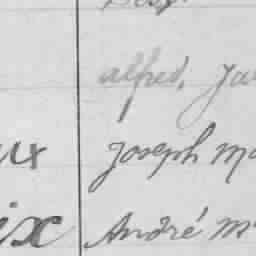 alfred, Ju
ux Joseph Ma
ix André M